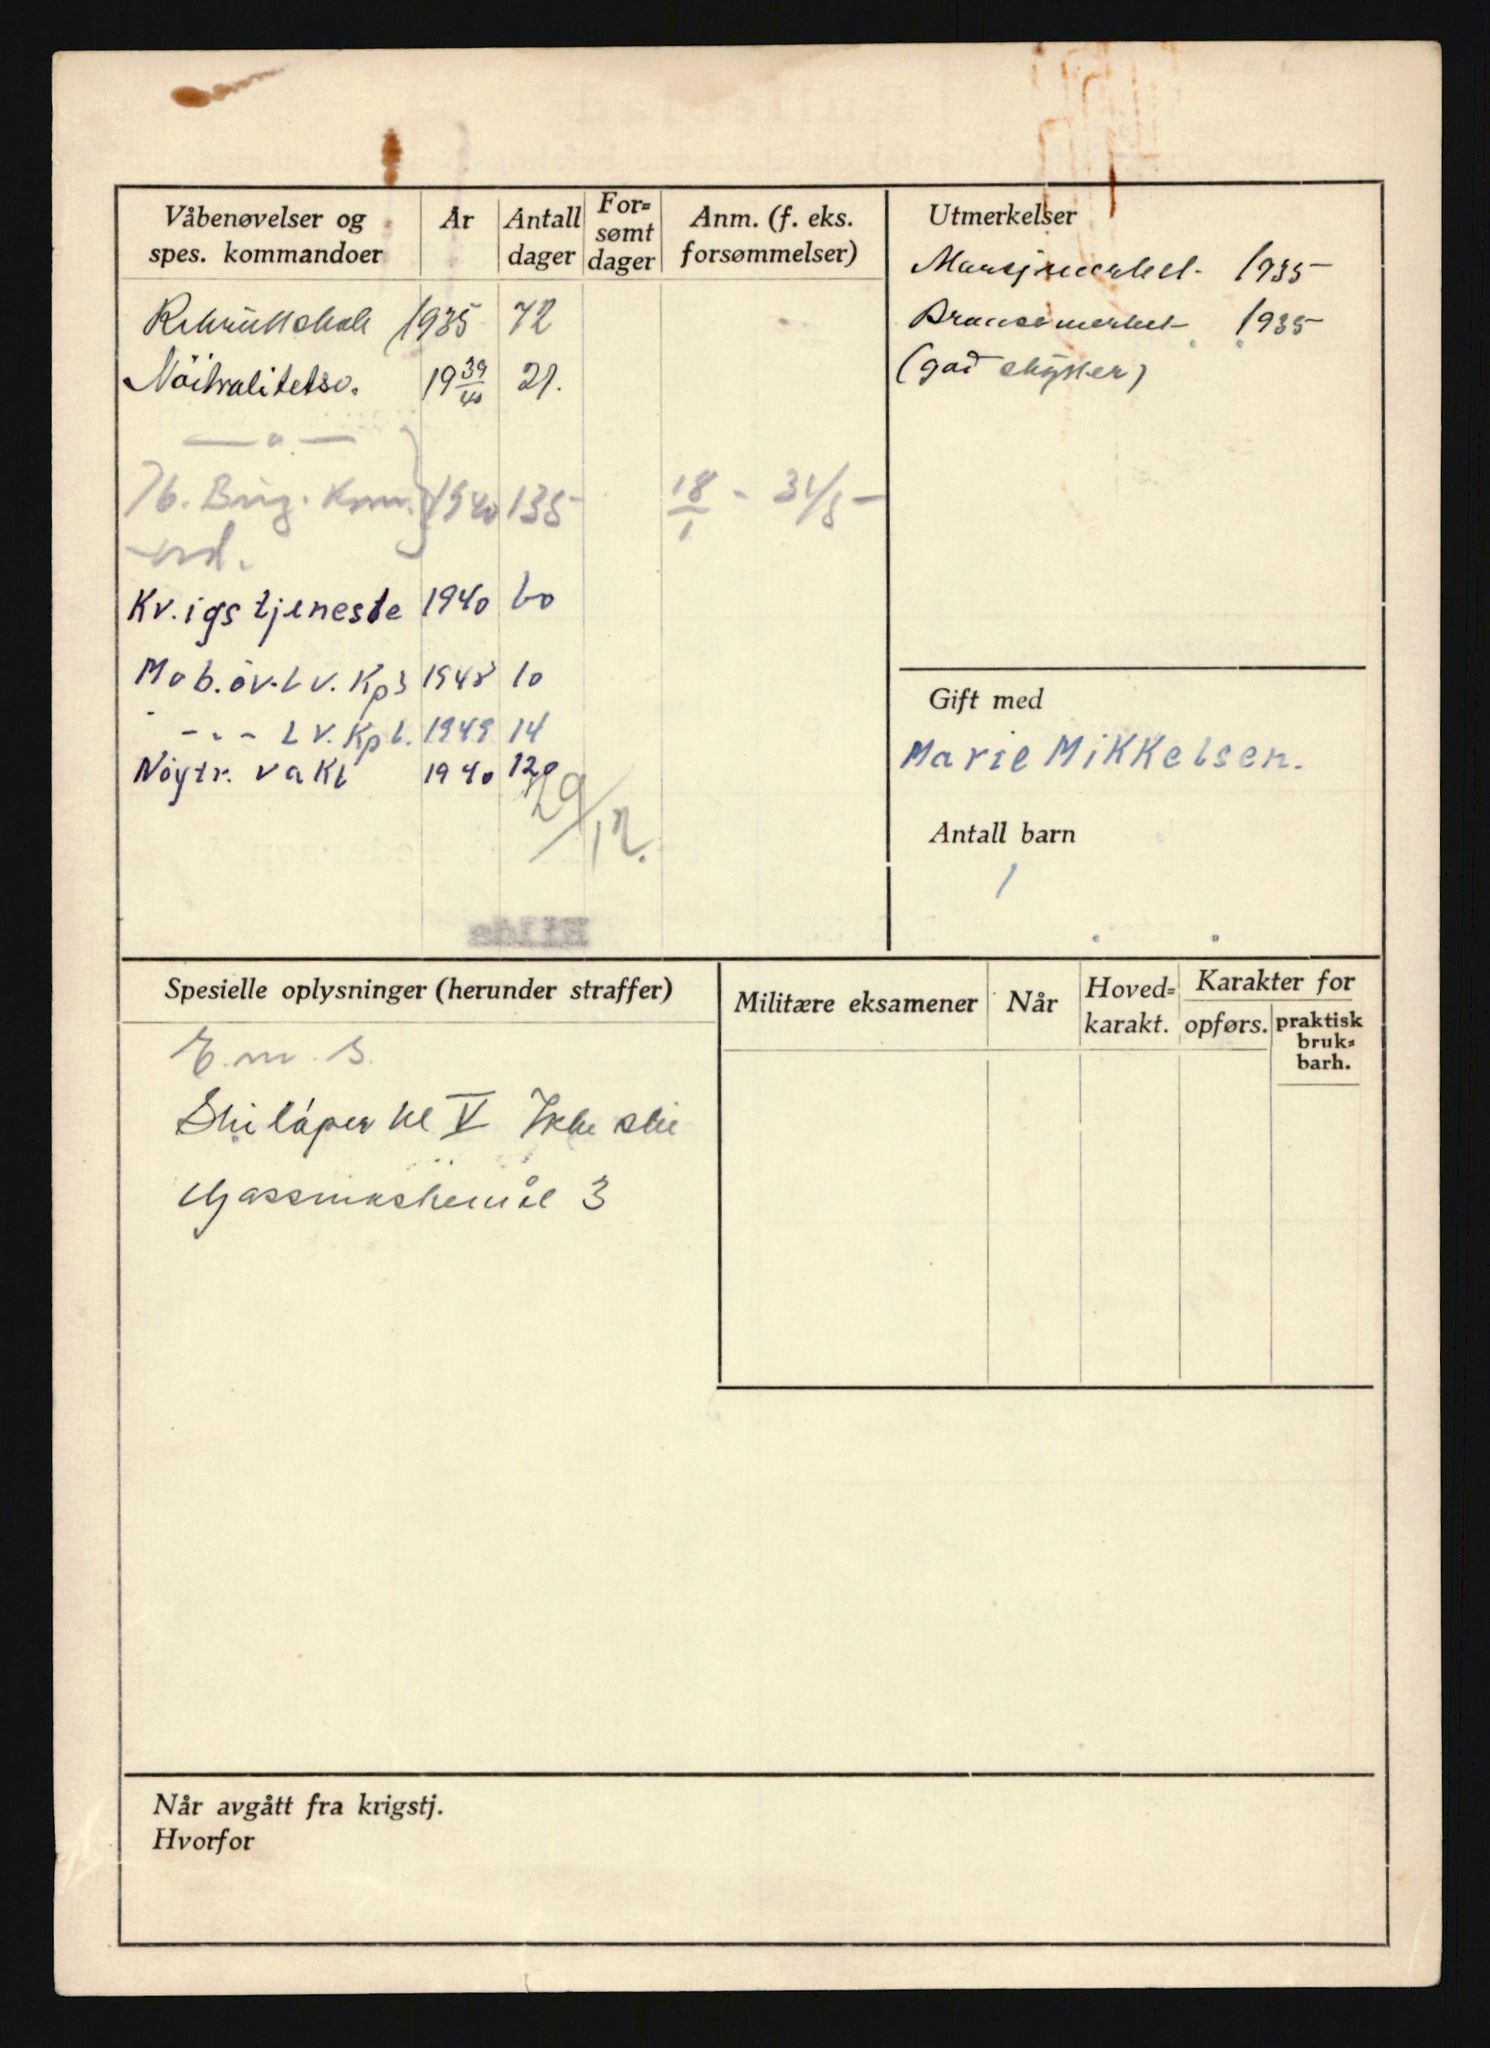 Våbenøvelser og spes. kommandoer | År | Antall dager | For=sømt dager | Anm. (f. eks. forsømmelser)
Rekruttskole 1935 72
Nöitralitetsv. 19 39/40 21.
— " —
Brig. 1940 135 18/1 - 31/5 -
Kv.igstjeneste 1940 60
Mob.öv. Lv. Kp 3 1948 10
- " - Lv. Kp 1. 1949 14
Nöytr. vakt 1940 120
29/12.
Utmerkelser
Marsjmerket 1935
Bronsemerket 1935
(god skytter)
Gift med
Marie Mikkelsen.
Antall barn
1
Eilde
Spesielle oplysninger (herunder straffer)
E.m.s.
Skiløper kl V Ikke ski
Gassmaskemål 3
Militære eksamener | Når | Hoved=karakt. | Karakter for opførs. | praktisk bruk=barh.
Når avgått fra krigstj.
Hvorfor